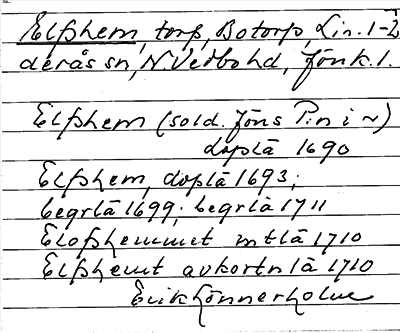 Elfshem, torp, Botorp, Lin. 1-2
derås sn, N. Vedbo hd, Jönk. l.
Elfshem (sold. Jöns P:n i ~)
doplä 1690
Elfshem, doplä 1693;
begrlä 1699; begrlä 1711
Elofshemmet mtlä 1710
Elfshemt avkortnlä 1710
Erik Lönnerholm